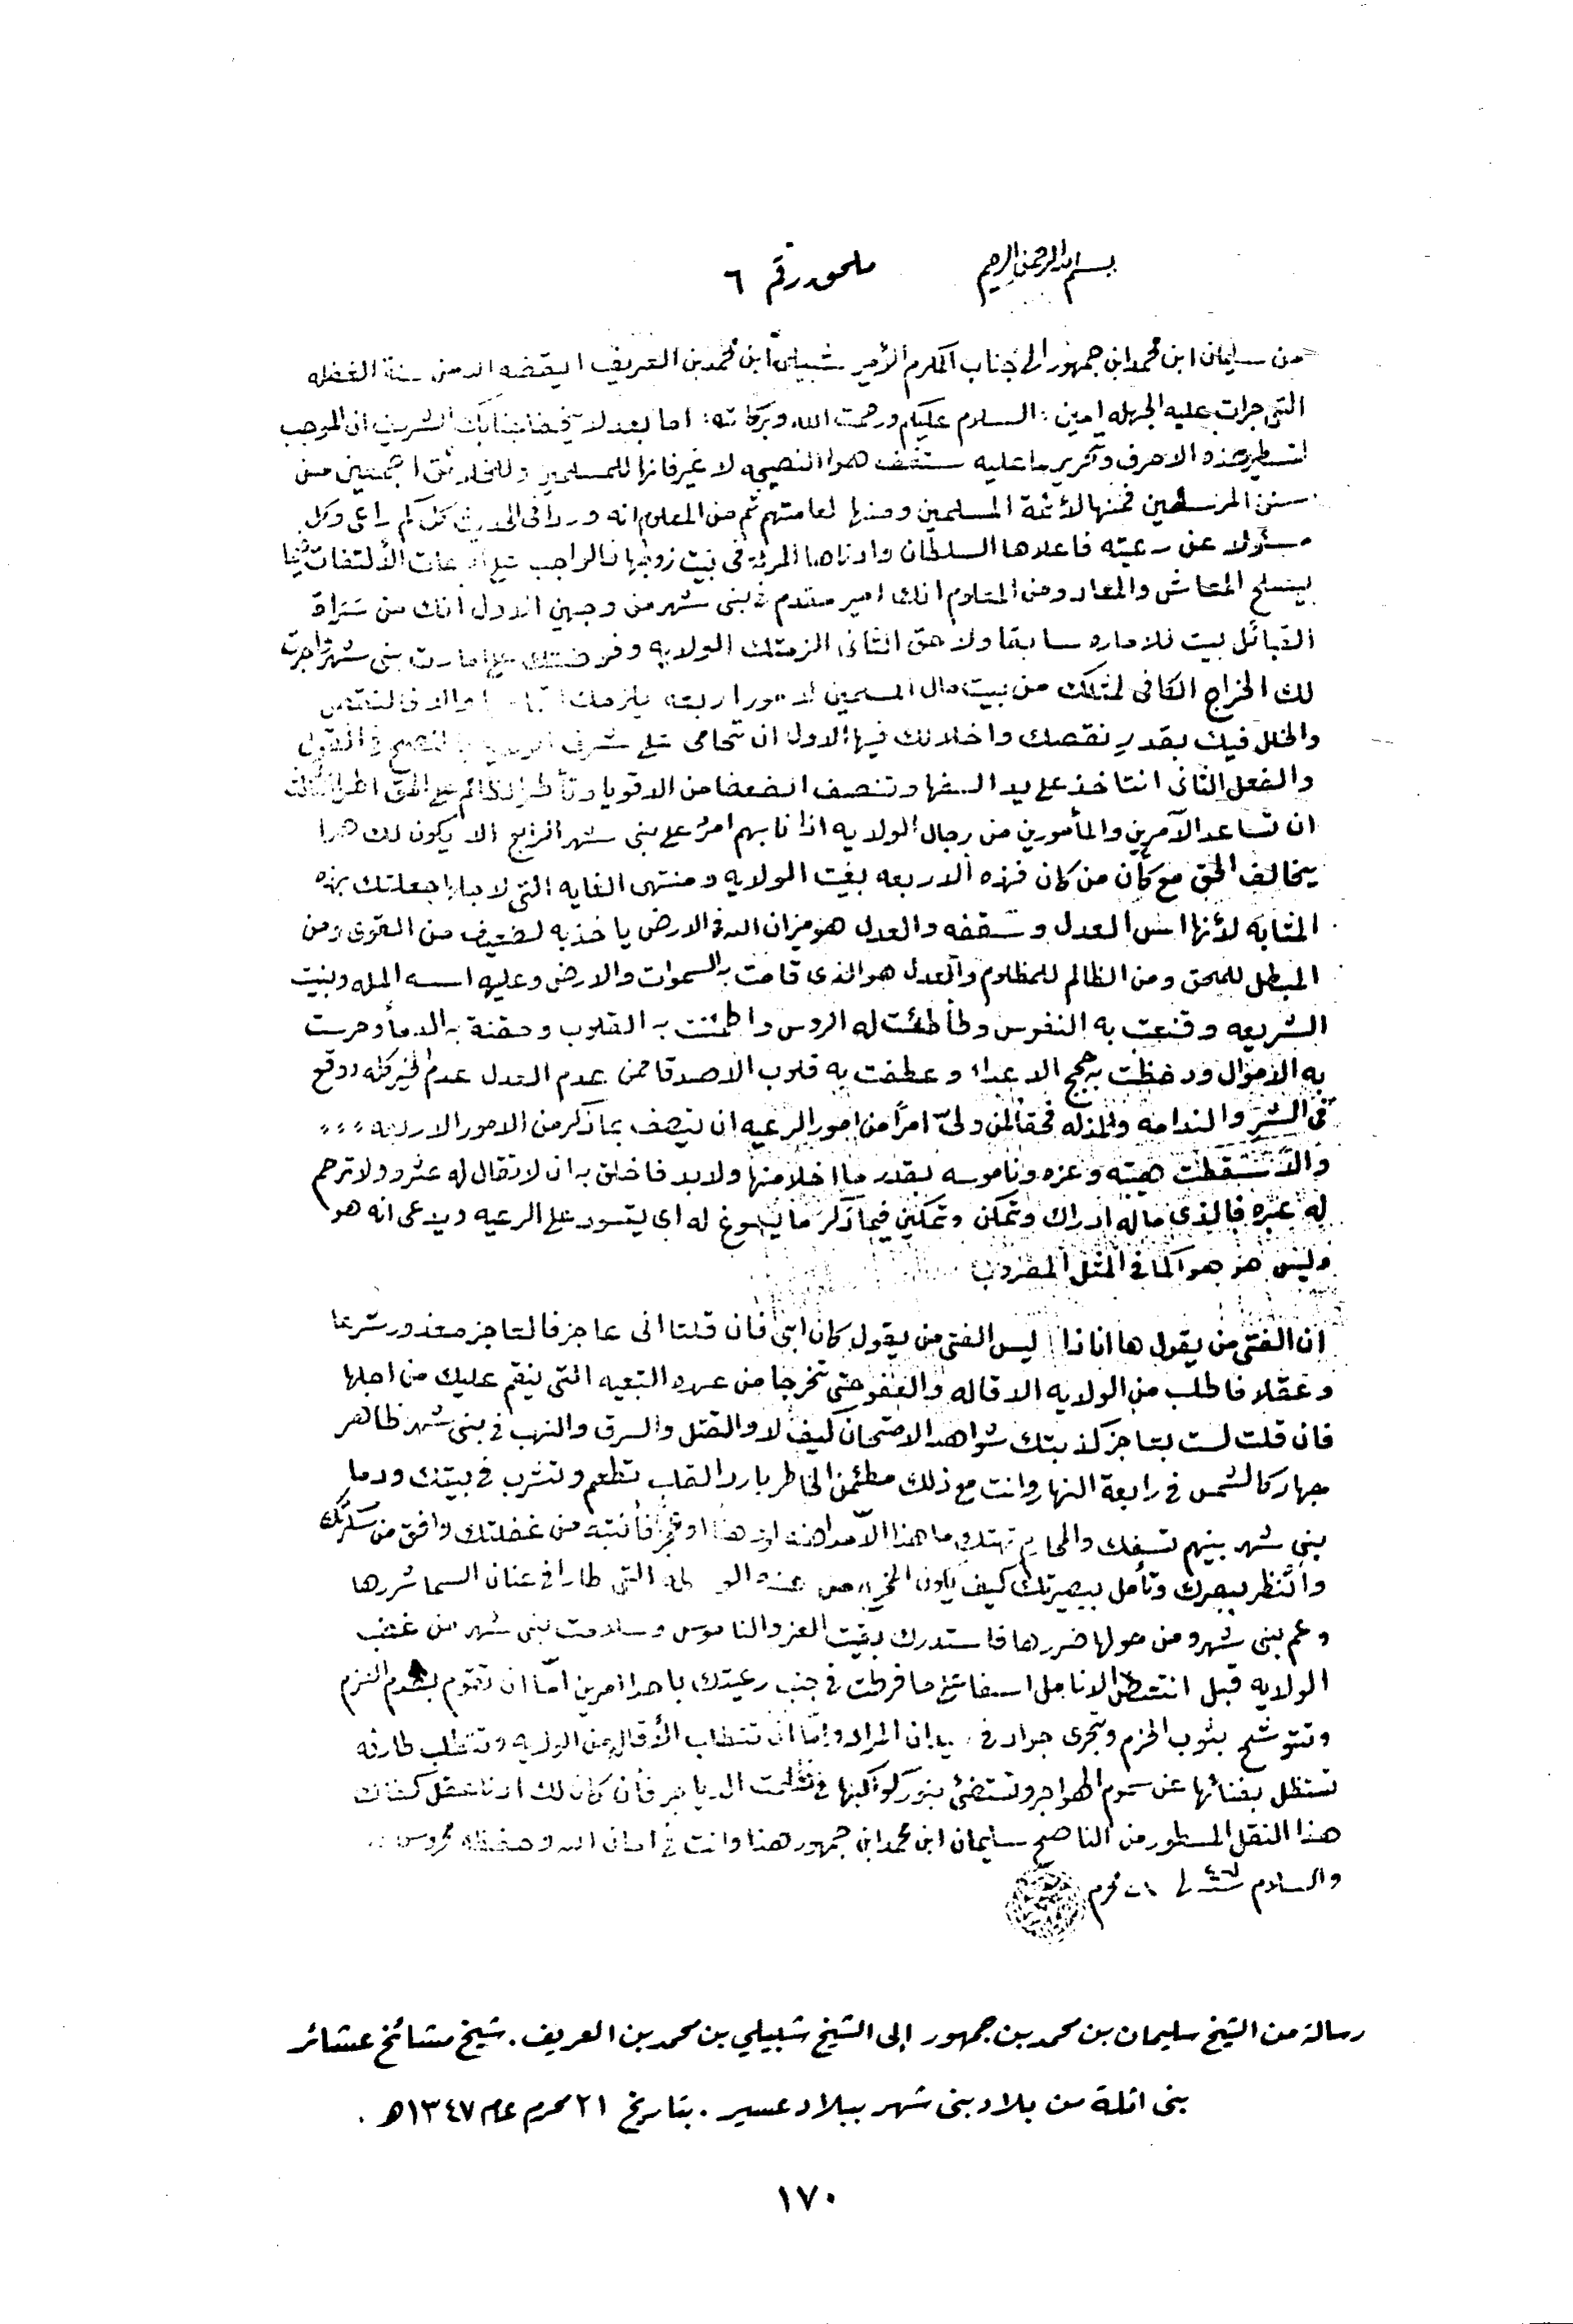 بسم الله الرحمن الرحيم
ملحق رقم ٦
من سليمان ابن محمد ابن جمهور الى جناب المكرم الأمير شبيلي ابن محمد بن العريف ايقضه الله من سنة الغفله
التي جرات عليه الجهله امين : السلام عليكم ورحمت الله وبركاته : اما بعد لا يخفا جنابك الشريف ان الموجب
لتسطير هذه الاحرف وتحرير ما عليه ستقف هو النصيحه لا غير فانها للمسلمين وللخلائق اجمعين من
سنن المرسلين فمنها لأئمة المسلمين ومنها لعامتهم ثم من المعلوم انه ورد في الحديث كل كم راعى وكل
مسؤلا عن رعيته فاعلاها السلطان وادناها المرئة في بيت زوجها فالواجب الألتفات فيما
يصلح المعاش والمعاد ومن المعلوم انك امير مقدم في بني شهر من وجهين الاول انك من سراة
القبائل بيت للاماره سابقا ولاحق الثاني الزمتك الولايه وفوضتك على امارت بني شهر واجرت
لك الخراج الكافي لمثلك من بيت مال المسلمين لامور اربعه يلزمك والا فالنقص
والخلل فيك بقدر نقصك واخلالك فيها الاول ان تحامي على شرف بالنصح في القول
والفعل الثاني انتاخذ على يد السفها وتنصف الضعفا من الاقويا وتأطر الظالم على الحق اطرا الثالث
ان تساعد الآمرين والمأمورين من رجال الولايه اذا نابهم امر على بني شهر الرابع الا يكون لك هوا
يخالف الحق مع كأن من كان فهذه الاربعه بغيت الولايه ومنتهى الغايه التي لاجلها جعلتك بهذه
المثابه لأنها اسس العدل وسقفه والعدل هو ميزان الله في الارض ياخذ به لضعيف من القوى ومن
المبطل للمحق ومن الظالم للمظلوم والعدل هو الذي قامت به السموات والارض وعليه اسسه المله وبنيت
الشريعه وقنعت به النفوس وطأطئت له الروس واطمئنت به القلوب وحقنة به الدمأ وحرست
به الاموال ودحضت به حجج الاعداء وعطفت به قلوب الاصدقا فمن عدم العدل عدم الخير كله ووقع
في الشر والندامه والمذله فحقا لمن ولي امرا من امور الرعيه ان يتصف بما ذكر من الامور الاربعه ،،،
والا سقطت هيبته وعزه وناموسه بقدر ما اخلا منها ولا بد فاخلق به ان لا تقال له عثره ولا ترحم
له عبره فالذي ماله ادراك وتمكن وتمكين فيما ذكر ما يسوغ له اي يتسود على الرعيه ويدعى انه هو
وليس هو هو كما في المثل المضروب
ان الفتى من يقول ها انا ذا ليس الفتى من يقول كان ابي فان قلتا اني عاجز فالعاجز معذور شرعا
وعقلا فاطلب من الولايه الاقاله والعفو حتى تخرجا من عهده التبعيه التي ينقم عليك من اجلها
فان قلت لست بعاجز كذبتك شواهد الامتحان كيف لا والقتل والسرق والنهب في بني شهر ظاهر
جهار كالشمس في رابعة النهار وانت مع ذلك مطئمن الخاطر بارد القلب تطعم وتشرب في بيتك ودما
بني شهر بينهم تسفك والمحارم تهتك ما هذا الا مداهنه او فانتبه من غفلتك وافق من سكرتك
وانظر ببصرك وتأمل ببصيرتك كيف يكون المخرج من هذه التي طار في عنان السما شررها
وعم بني شهر ومن حولها ضررها فاستدرك بقيت العز والناموس وسلامت بني شهر من غضب
الولايه قبل انتعظ الانامل اسفا على ما فرطت في جنب رعيتك باحد امرين امّا ان تقوم بقدم العزم
وتتوشح بثوب الحزم وتجرى جوادك في ميدان المراد وامّا ان تتطلب الأقاله من الولايه وتتطلب طارفه
تستظل بفنائها عن سموم الهواجر وتستضئ بنور كواكبها في ظلمت الدياجر فأن كان لك ادنا عقل كفاك
هذا النقل المسطور من الناصح سليمان ابن محمد ابن جمهور هذا وانت في امان الله وحفظه محروس
والسلام محرم
رسالة من الشيخ سليمان بن محمد بن جمهور إلى الشيخ شبيلي بن محمد بن العريف . شيخ مشائخ عشائر
بني اثلة من بلاد بني شهر ببلاد عسير . بتاريخ ٢١ محرم عام ١٣٤٧هـ .
١٧٠